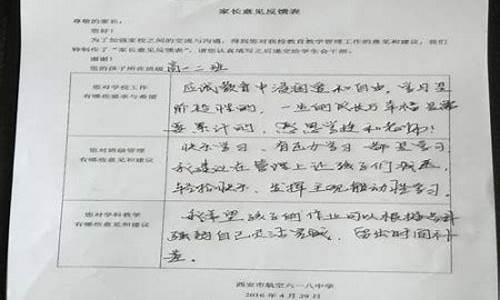 家长意见反馈表
尊敬的家长：
您好！
为了加强家校之间的交流与沟通，得到您对我校教育教学管理工作的意见和建议，我们
特制作了“家长意见反馈表”，请您认真填写之后递交给学生会干部。
谢谢！
您的孩子所在班级 高一二班
您对学校工作
有哪些要求与希望
教育中 和自由，学习是
阶段性的，一生的成长
累计的，感恩学校和老师！
您对班级管理
有哪些意见和建议
快乐学习、有压力学习都是学习
我建议在管理上让孩子们
轻松快乐、发挥主观能动性学习
您对学科教学
有哪些意见和建议
我希望孩子们的作业可以根据
自己灵活 ，留出时间补
差。
西安市航空六一八中学
2016年4月29日